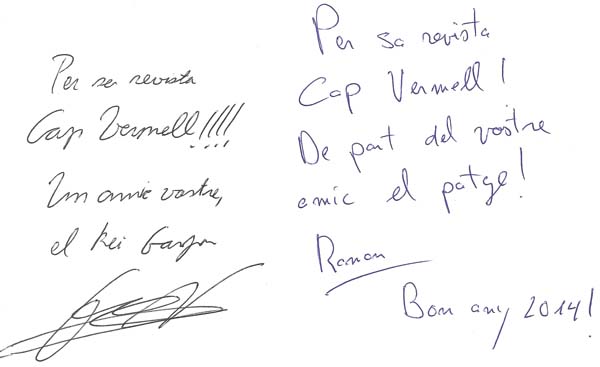 Per sa revista
Cap Vermell!!!!
Un amic vostre,
el Rei Gaspar
Per sa revista
Cap Vermell!
De part del vostre
amic el patge!
Ramon
Bon any 2014!